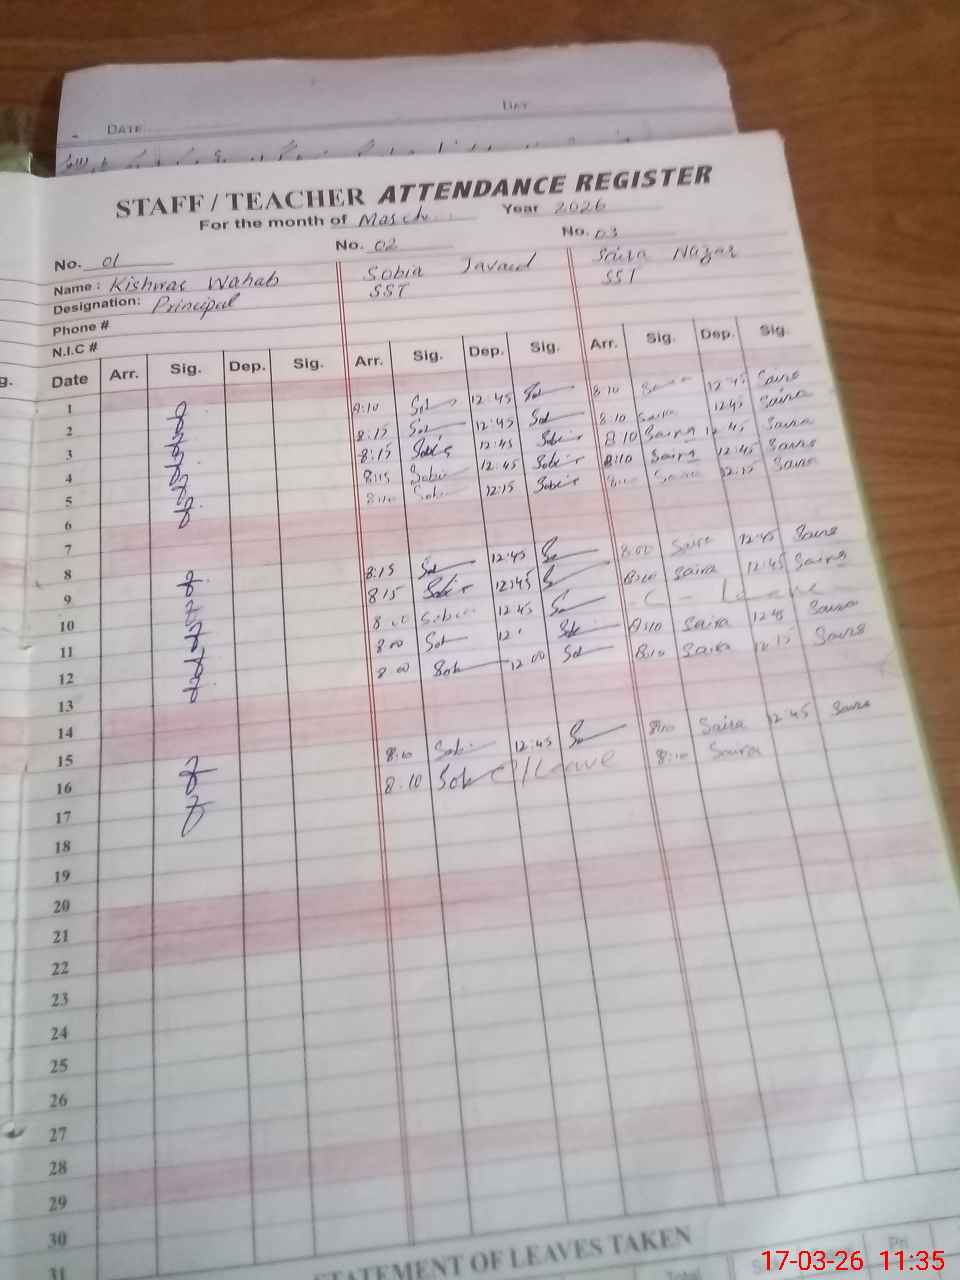 DAY
DATE
STAFF / TEACHER ATTENDANCE REGISTER
For the month of March Year 2026
No. 01 No. 02 No. 03
Name: Kishwar Wahab Sobia Javaid Saira Nazar
Designation: Principal SST SST
Phone #
N.I.C #
Date Arr. Sig. Dep. Sig. Arr. Sig. Dep. Sig. Arr. Sig. Dep. Sig.
1
2 8:10 Sob 12:45 Sob 8:10 12:45 Saira
3 8:15 Sob 12:45 Sob 8:10 Saira 12:45 Saira
4 8:15 Sobia 12:45 Sobia 8:10 Saira 12:45 Saira
5 8:15 Sobia 12:45 Sobia 8:10 Saira 12:45 Saira
6 8:10 Sob 12:15 Sobia Saira 12:15 Saira
7
8
9 8:15 Sob 12:45 8:00 Saira 12:45 Saira
10 8:15 Sobia 12:45 8:10 Saira 12:45 Saira
11 8:00 Sobia 12:45 C - Leave
12 8:00 Sob Sob 8:10 Saira 12:45 Saira
13 8:00 Sob 12:00 Sob 8:10 Saira 12:15 Saira
14
15
16 8:10 Sobi 12:45 8:10 Saira 12:45 Saira
17 8:10 Sob C/Leave 8:10 Saira
18
19
20
21
22
23
24
25
26
27
28
29
30
31
STATEMENT OF LEAVES TAKEN
Total
17-03-26 11:35